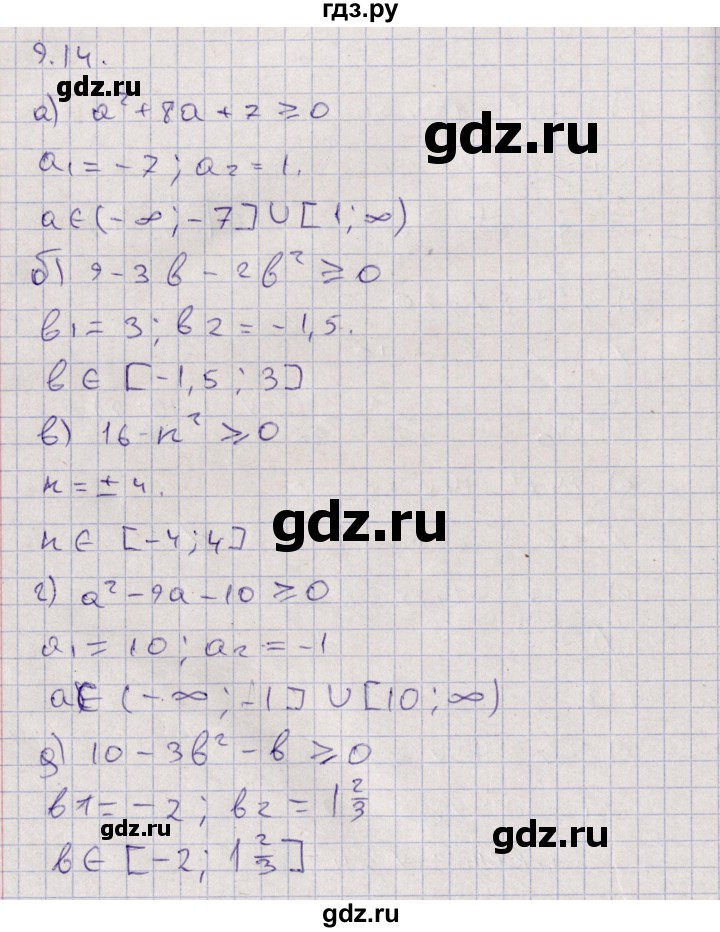 гдз.ру
9.14.
gdz.ru
а) a² + 8a + 7 ≥ 0
gdz.ru
a₁ = -7; a₂ = 1.
a ∈ (-∞; -7] ∪ [1; ∞)
б) 9 - 3b - 2b² ≥ 0
b₁ = 3; b₂ = -1,5.
b ∈ [-1,5; 3]
в) 16 - n² ≥ 0
n = ± 4.
gdz.ru
n ∈ [-4; 4]
г) a² - 9a - 10 ≥ 0
a₁ = 10; a₂ = -1
a ∈ (-∞; -1] ∪ [10; ∞)
д) 10 - 3b² - b ≥ 0
b1 = -2; b₂ = 1 2/3
gdz.ru
gdz.ru
b ∈ [-2; 1 2/3]
gdz.ru